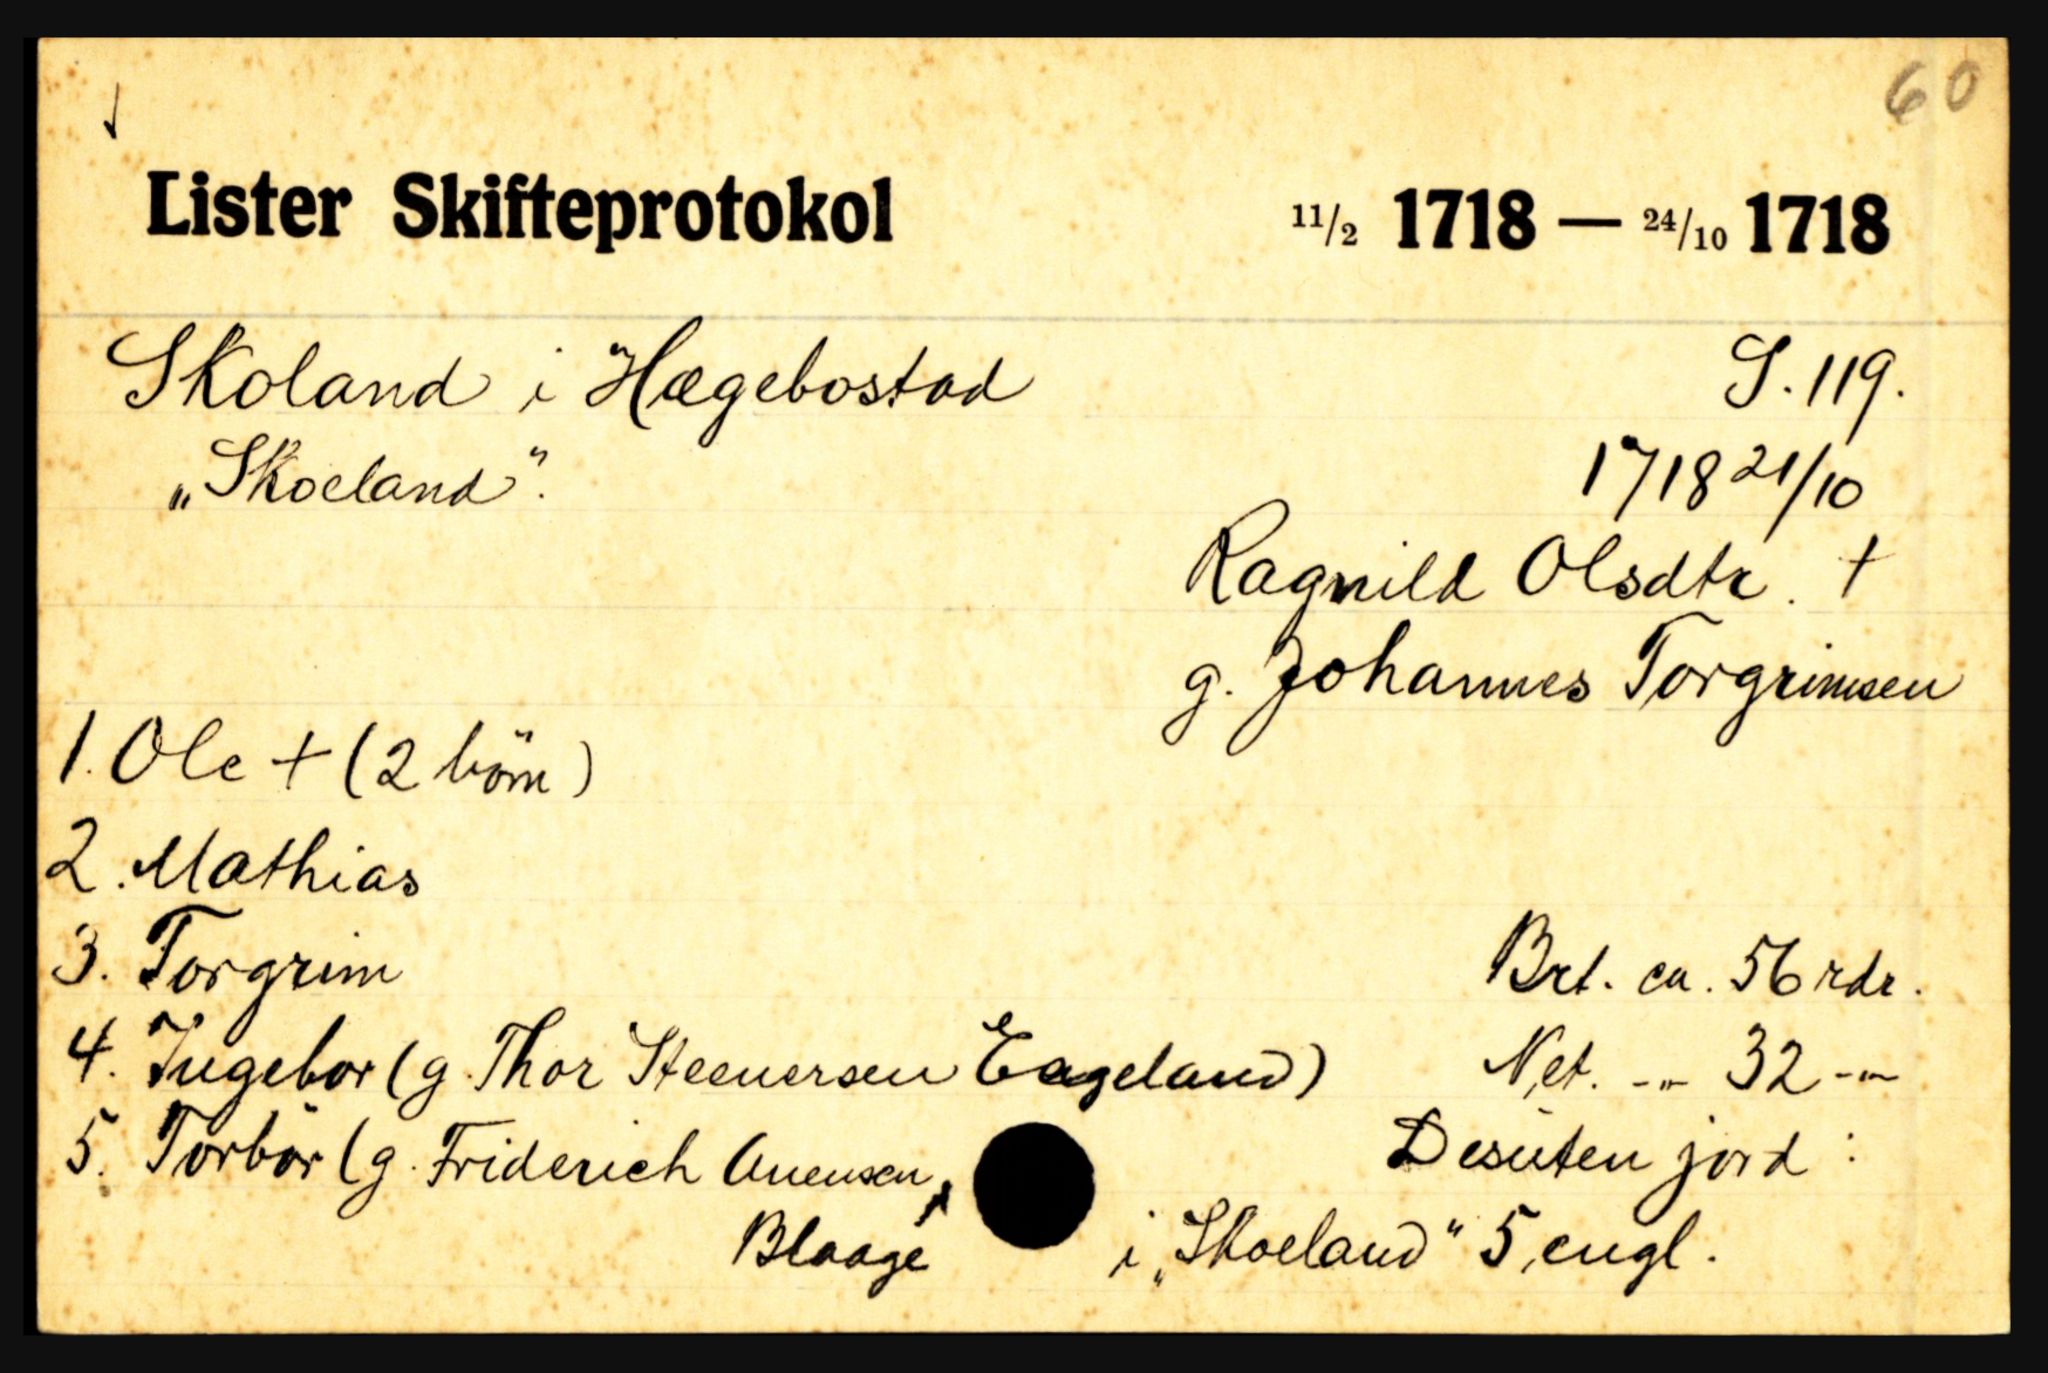 60
Lister Skifteprotokol 11/2 1718 — 24/10 1718
Skoland i Hægebostad S. 119.
„Skoeland". 1718 21/10
Ragnild Olsdtr. +
g. Johannes Torgrimsen
1. Ole + (2 börn)
2. Mathias
3. Torgrim Brt. ca. 56 rdr.
4. Ingebor (g. Thor Steenersen Eageland) Net. -"- 32 -"-
5. Torbör (g. Friderich Anensen, Desuten jord :
Blaage i „Skoeland" 5 engl.